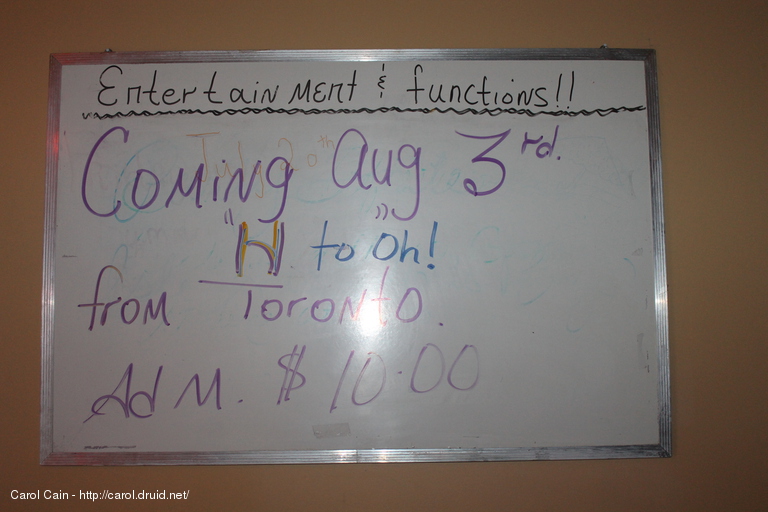 Entertainment & functions!!
Coming Aug 3rd.
"H. to Oh!"
from Toronto.
Adm. $10.00
Carol Cain - http://carol.druid.net/